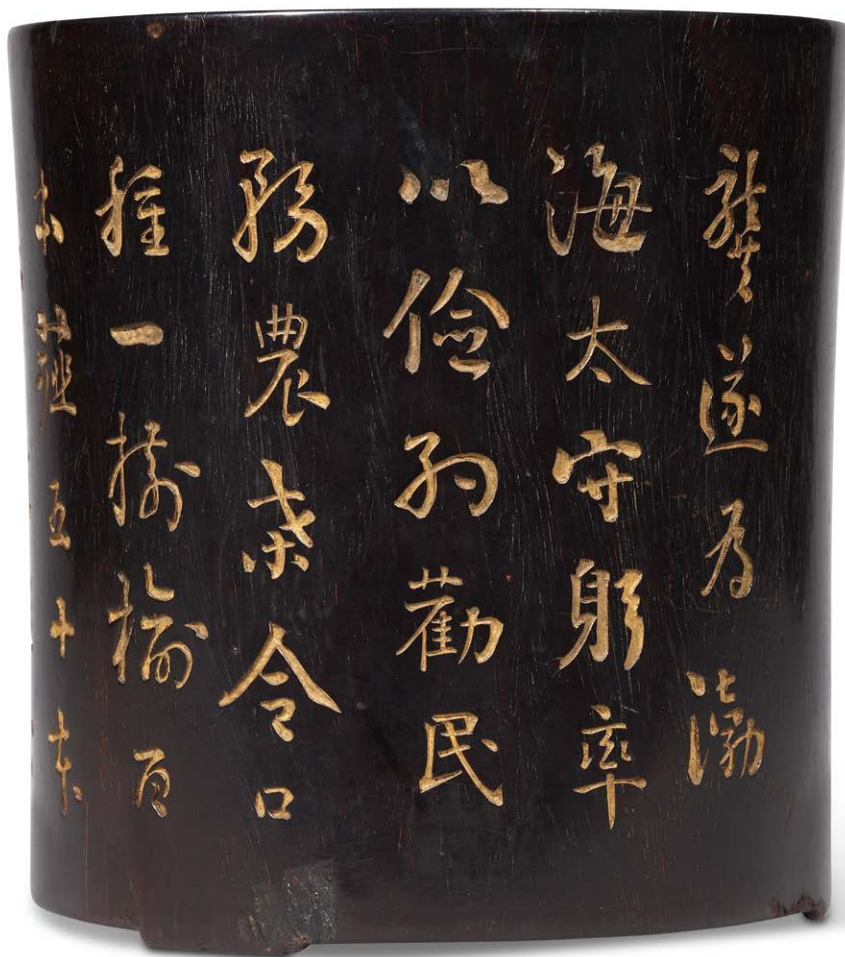 龔遂為渤
海太守躬率
以儉約勸民
務農桒令口
種一樹榆百
本薤五十本